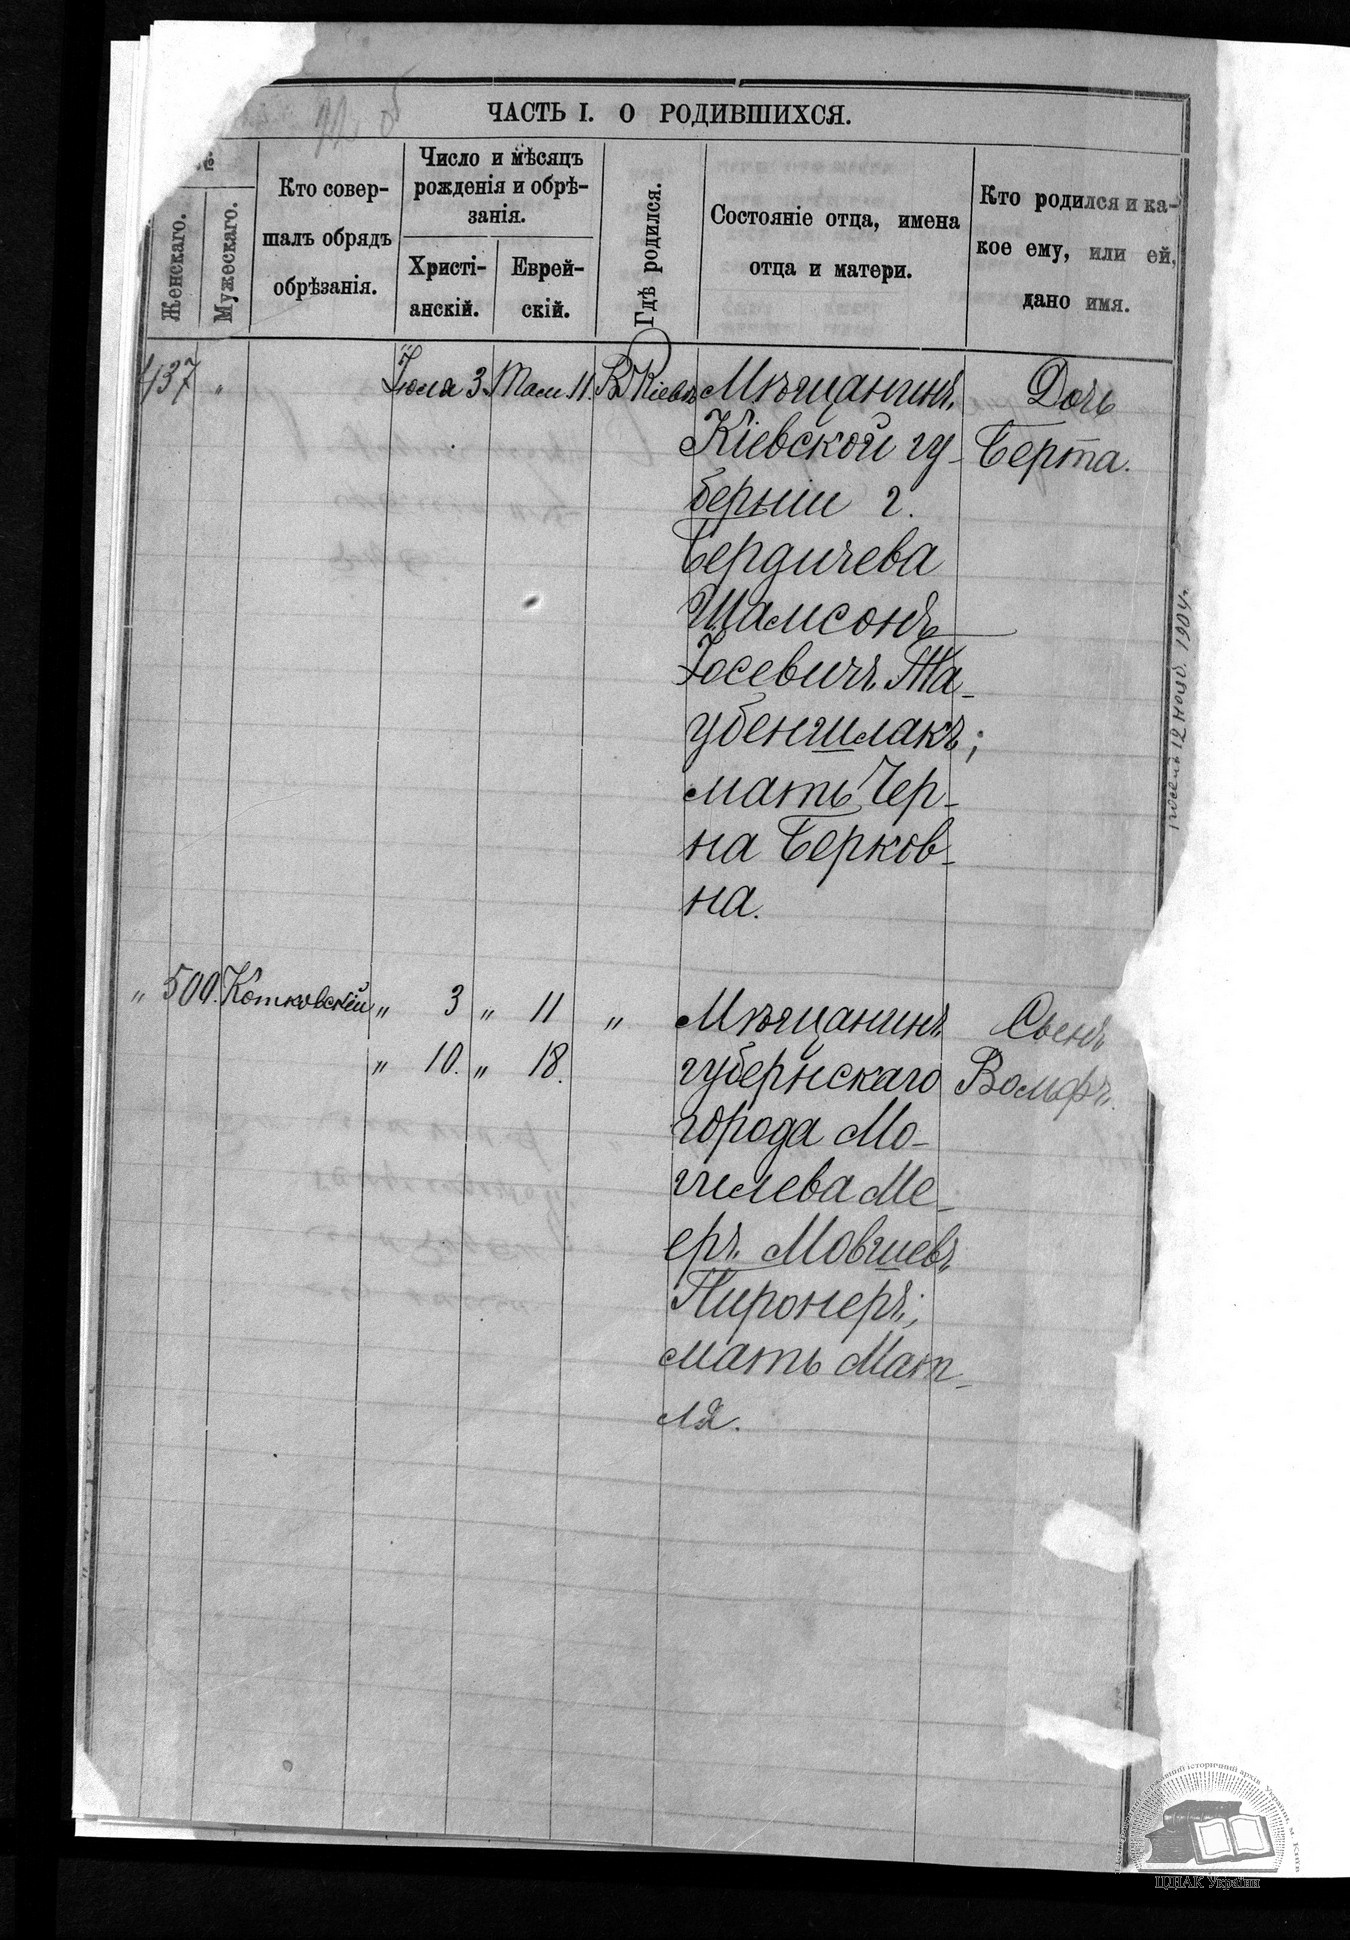 ЧАСТЬ I. О РОДИВШИХСЯ.
№.
Женскаго.
Мужескаго.
Кто совер-
шалъ обрядъ
обрѣзанія.
Число и мѣсяцъ
рожденія и обрѣ-
занія.
Христі-
анскій.
Еврей-
скій.
Гдѣ родился.
Состояніе отца, имена
отца и матери.
Кто родился и ка-
кое ему, или ей,
дано имя.
437 " Іюля 3. Там. 11. В Кіевѣ Мѣщанинъ Дочь
Кіевской гу- Берта.
берніи г.
Бердичева
Шамсонъ
Іосевичъ Та-
убеншлакъ;
мать Чер-
на Берков-
на.
" 500. Котковскій " 3 " 11 " Мѣщанинъ Сынъ
" 10. " 18. губернскаго Вольфъ.
города Мо-
гилева Ме-
еръ Мовшевъ
Пиронеръ;
мать Мат-
ля.
12 нояб. 1904 г.
ЦДІАК України